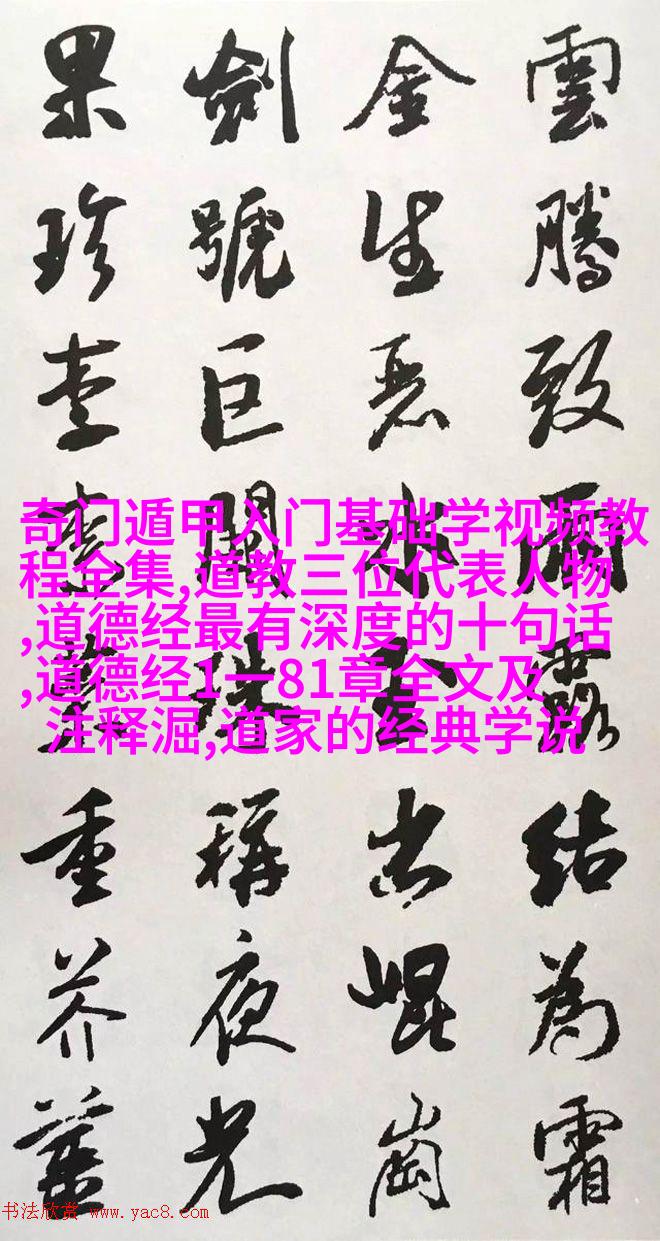 雲騰致雨露結為霜
金生麗水玉出崐崗
劍號巨闕珠稱夜光
果珍李柰菜重芥薑
奇门遁甲入门基础学视频教
程全集,道教三位代表人物
,道德经最有深度的十句话
,道德经1一81章全文及
注释淈,道家的经典学说
书法欣赏 www.yac8.com